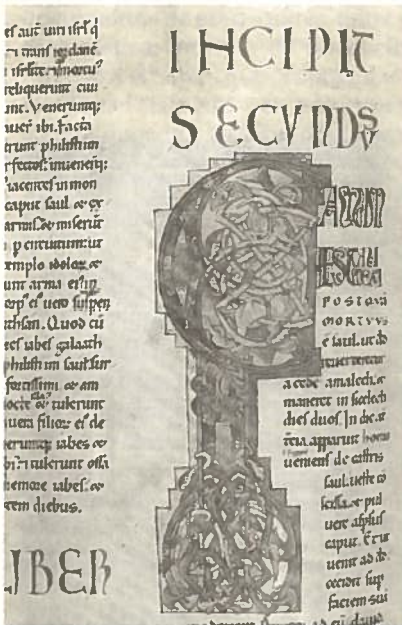 es aut viri isrl q
trans iordane
reliquerunt civi
unt. Veneruntq;
ibi. Facta
philistiim
invenerūt
iacentes in mon
caput saul &
armis. & miserūt
p circuitum: ut
templo idoloꝝ &
unt arma ei in
ei vero suspen
thsan. Quod cū
es iabes galaath
philistiim saul. sur
fortissimi & am
nocte & tulerunt
filioꝝ ei de
iabes &
tulerunt ossa
nemore iabes. &
tem diebus.
LIBER
INCIPIT
SECVNDVS
FACTVM
EST AVTEM
POSTQVĀ
MORTVVS
e saul. ut dd
reverteretur
a cede amalech. &
maneret in sicelech
dies duos. In die at
tcia. apparuit homo
veniens de castris
saul. veste cō
scissa. & pul
vere aspsus
caput. Et ut
venit ad dd.
cecidit sup
faciem suā